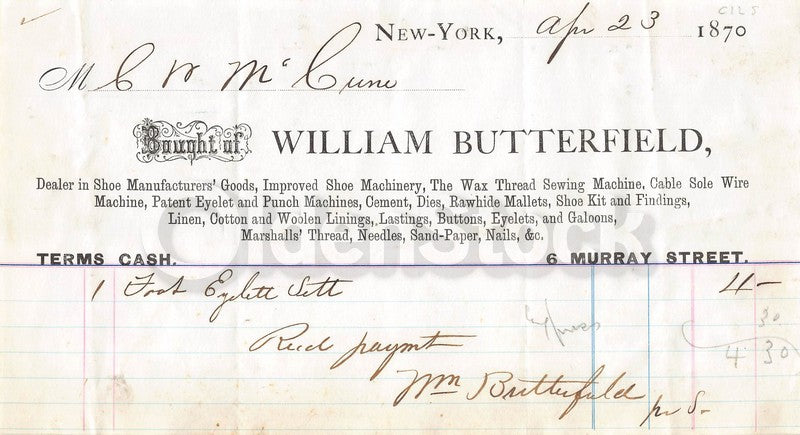 C125
NEW-YORK, Apr 23 1870
M C W McCune
Bought of WILLIAM BUTTERFIELD,
Dealer in Shoe Manufacturers' Goods, Improved Shoe Machinery, The Wax Thread Sewing Machine, Cable Sole Wire
Machine, Patent Eyelet and Punch Machines, Cement, Dies, Rawhide Mallets, Shoe Kit and Findings,
Linen, Cotton and Woolen Linings, Lastings, Buttons, Eyelets, and Galoons,
Marshalls' Thread, Needles, Sand-Paper, Nails, &c.
TERMS CASH. 6 MURRAY STREET.
OldenStock
1 Foot Eyelett Sett 4–
Express 30
Recd paymt 4 30
Wm Butterfield
pr S.